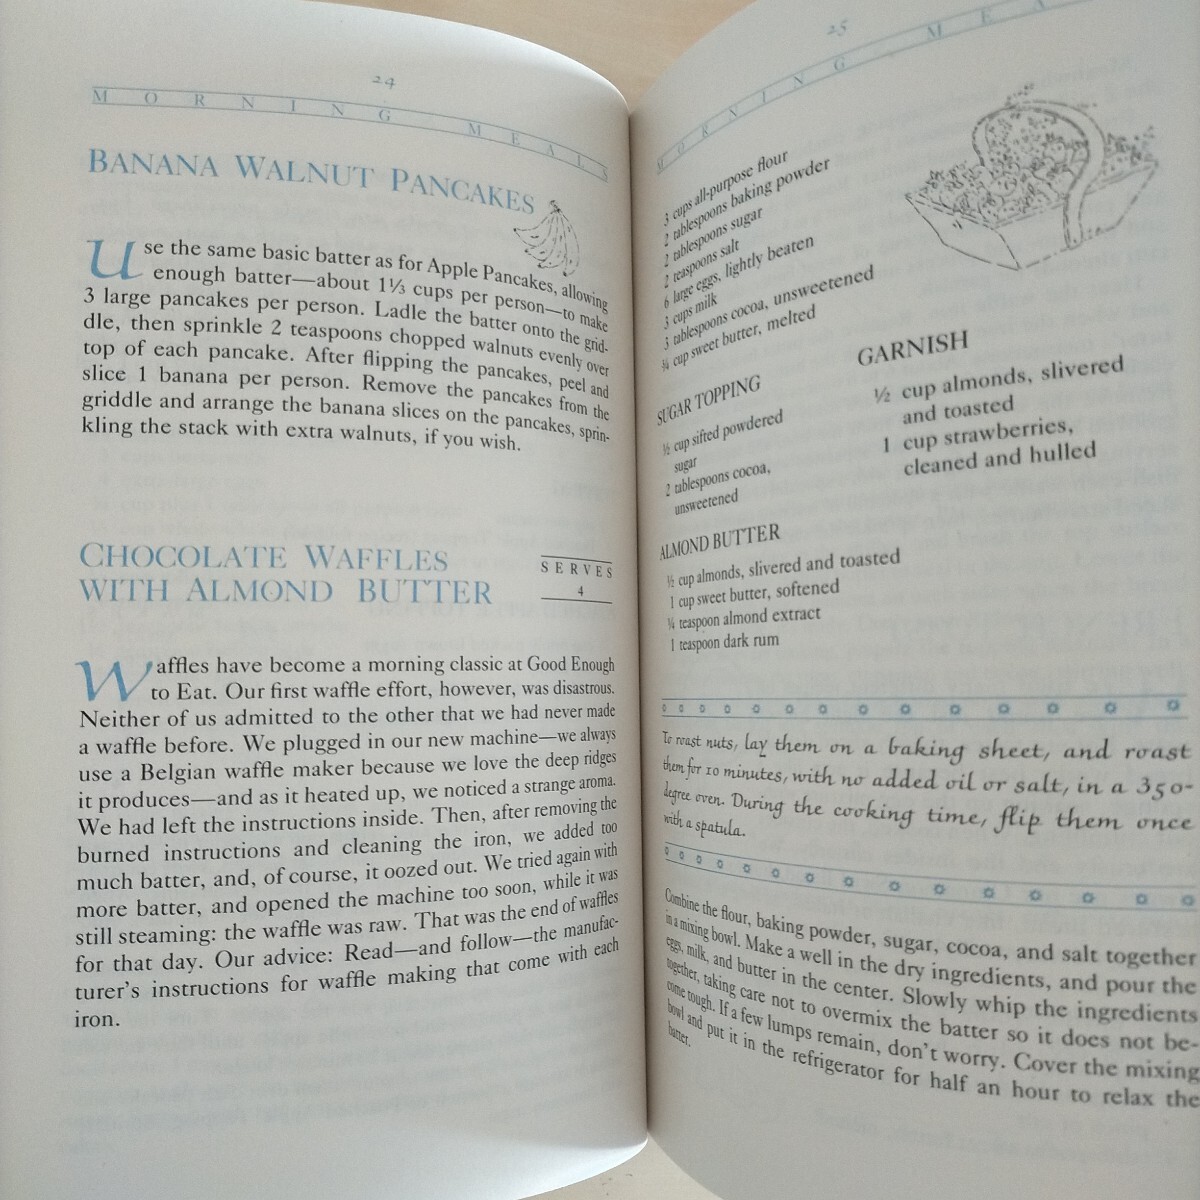 24
MORNING MEALS
BANANA WALNUT PANCAKES
Use the same basic batter as for Apple Pancakes, allowing
enough batter—about 1⅓ cups per person—to make
3 large pancakes per person. Ladle the batter onto the grid-
dle, then sprinkle 2 teaspoons chopped walnuts evenly over
top of each pancake. After flipping the pancakes, peel and
slice 1 banana per person. Remove the pancakes from the
griddle and arrange the banana slices on the pancakes, sprin-
kling the stack with extra walnuts, if you wish.
CHOCOLATE WAFFLES
WITH ALMOND BUTTER
SERVES
4
Waffles have become a morning classic at Good Enough
to Eat. Our first waffle effort, however, was disastrous.
Neither of us admitted to the other that we had never made
a waffle before. We plugged in our new machine—we always
use a Belgian waffle maker because we love the deep ridges
it produces—and as it heated up, we noticed a strange aroma.
We had left the instructions inside. Then, after removing the
burned instructions and cleaning the iron, we added too
much batter, and, of course, it oozed out. We tried again with
more batter, and opened the machine too soon, while it was
still steaming: the waffle was raw. That was the end of waffles
for that day. Our advice: Read—and follow—the manufac-
turer's instructions for waffle making that come with each
iron.
25
MORNING MEA
3 cups all-purpose flour
2 tablespoons baking powder
2 tablespoons sugar
2 teaspoons salt
6 large eggs, lightly beaten
3 cups milk
3 tablespoons cocoa, unsweetened
¾ cup sweet butter, melted
SUGAR TOPPING
½ cup sifted powdered
sugar
2 tablespoons cocoa,
unsweetened
GARNISH
½ cup almonds, slivered
and toasted
1 cup strawberries,
cleaned and hulled
ALMOND BUTTER
½ cup almonds, slivered and toasted
1 cup sweet butter, softened
¼ teaspoon almond extract
1 teaspoon dark rum
To roast nuts, lay them on a baking sheet, and roast
them for 10 minutes, with no added oil or salt, in a 350-
degree oven. During the cooking time, flip them once
with a spatula.
Combine the flour, baking powder, sugar, cocoa, and salt together
in a mixing bowl. Make a well in the dry ingredients, and pour the
eggs, milk, and butter in the center. Slowly whip the ingredients
together, taking care not to overmix the batter so it does not be-
come tough. If a few lumps remain, don't worry. Cover the mixing
bowl and put it in the refrigerator for half an hour to relax the
batter.